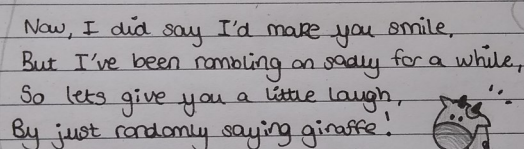 Now, I did say I'd make you smile,
But I've been rambling on sadly for a while,
So lets give you a little laugh,
By just randomly saying giraffe!